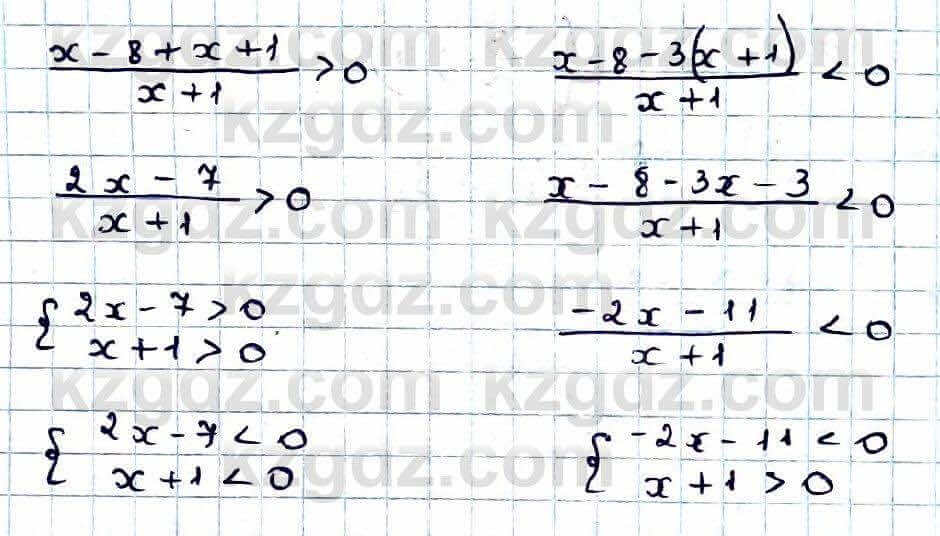 (x - 8 + x + 1)/(x + 1) > 0
(x - 8 - 3(x + 1))/(x + 1) < 0
(2x - 7)/(x + 1) > 0
(x - 8 - 3x - 3)/(x + 1) < 0
{ 2x - 7 > 0
x + 1 > 0
(-2x - 11)/(x + 1) < 0
{ 2x - 7 < 0
x + 1 < 0
{ -2x - 11 < 0
x + 1 > 0
kzgdz.com
kzgdz.com
kzgdz.com
kzgdz.com
kzgdz.com
kzgdz.com
kzgdz.com
kzgdz.com
kzgdz.com